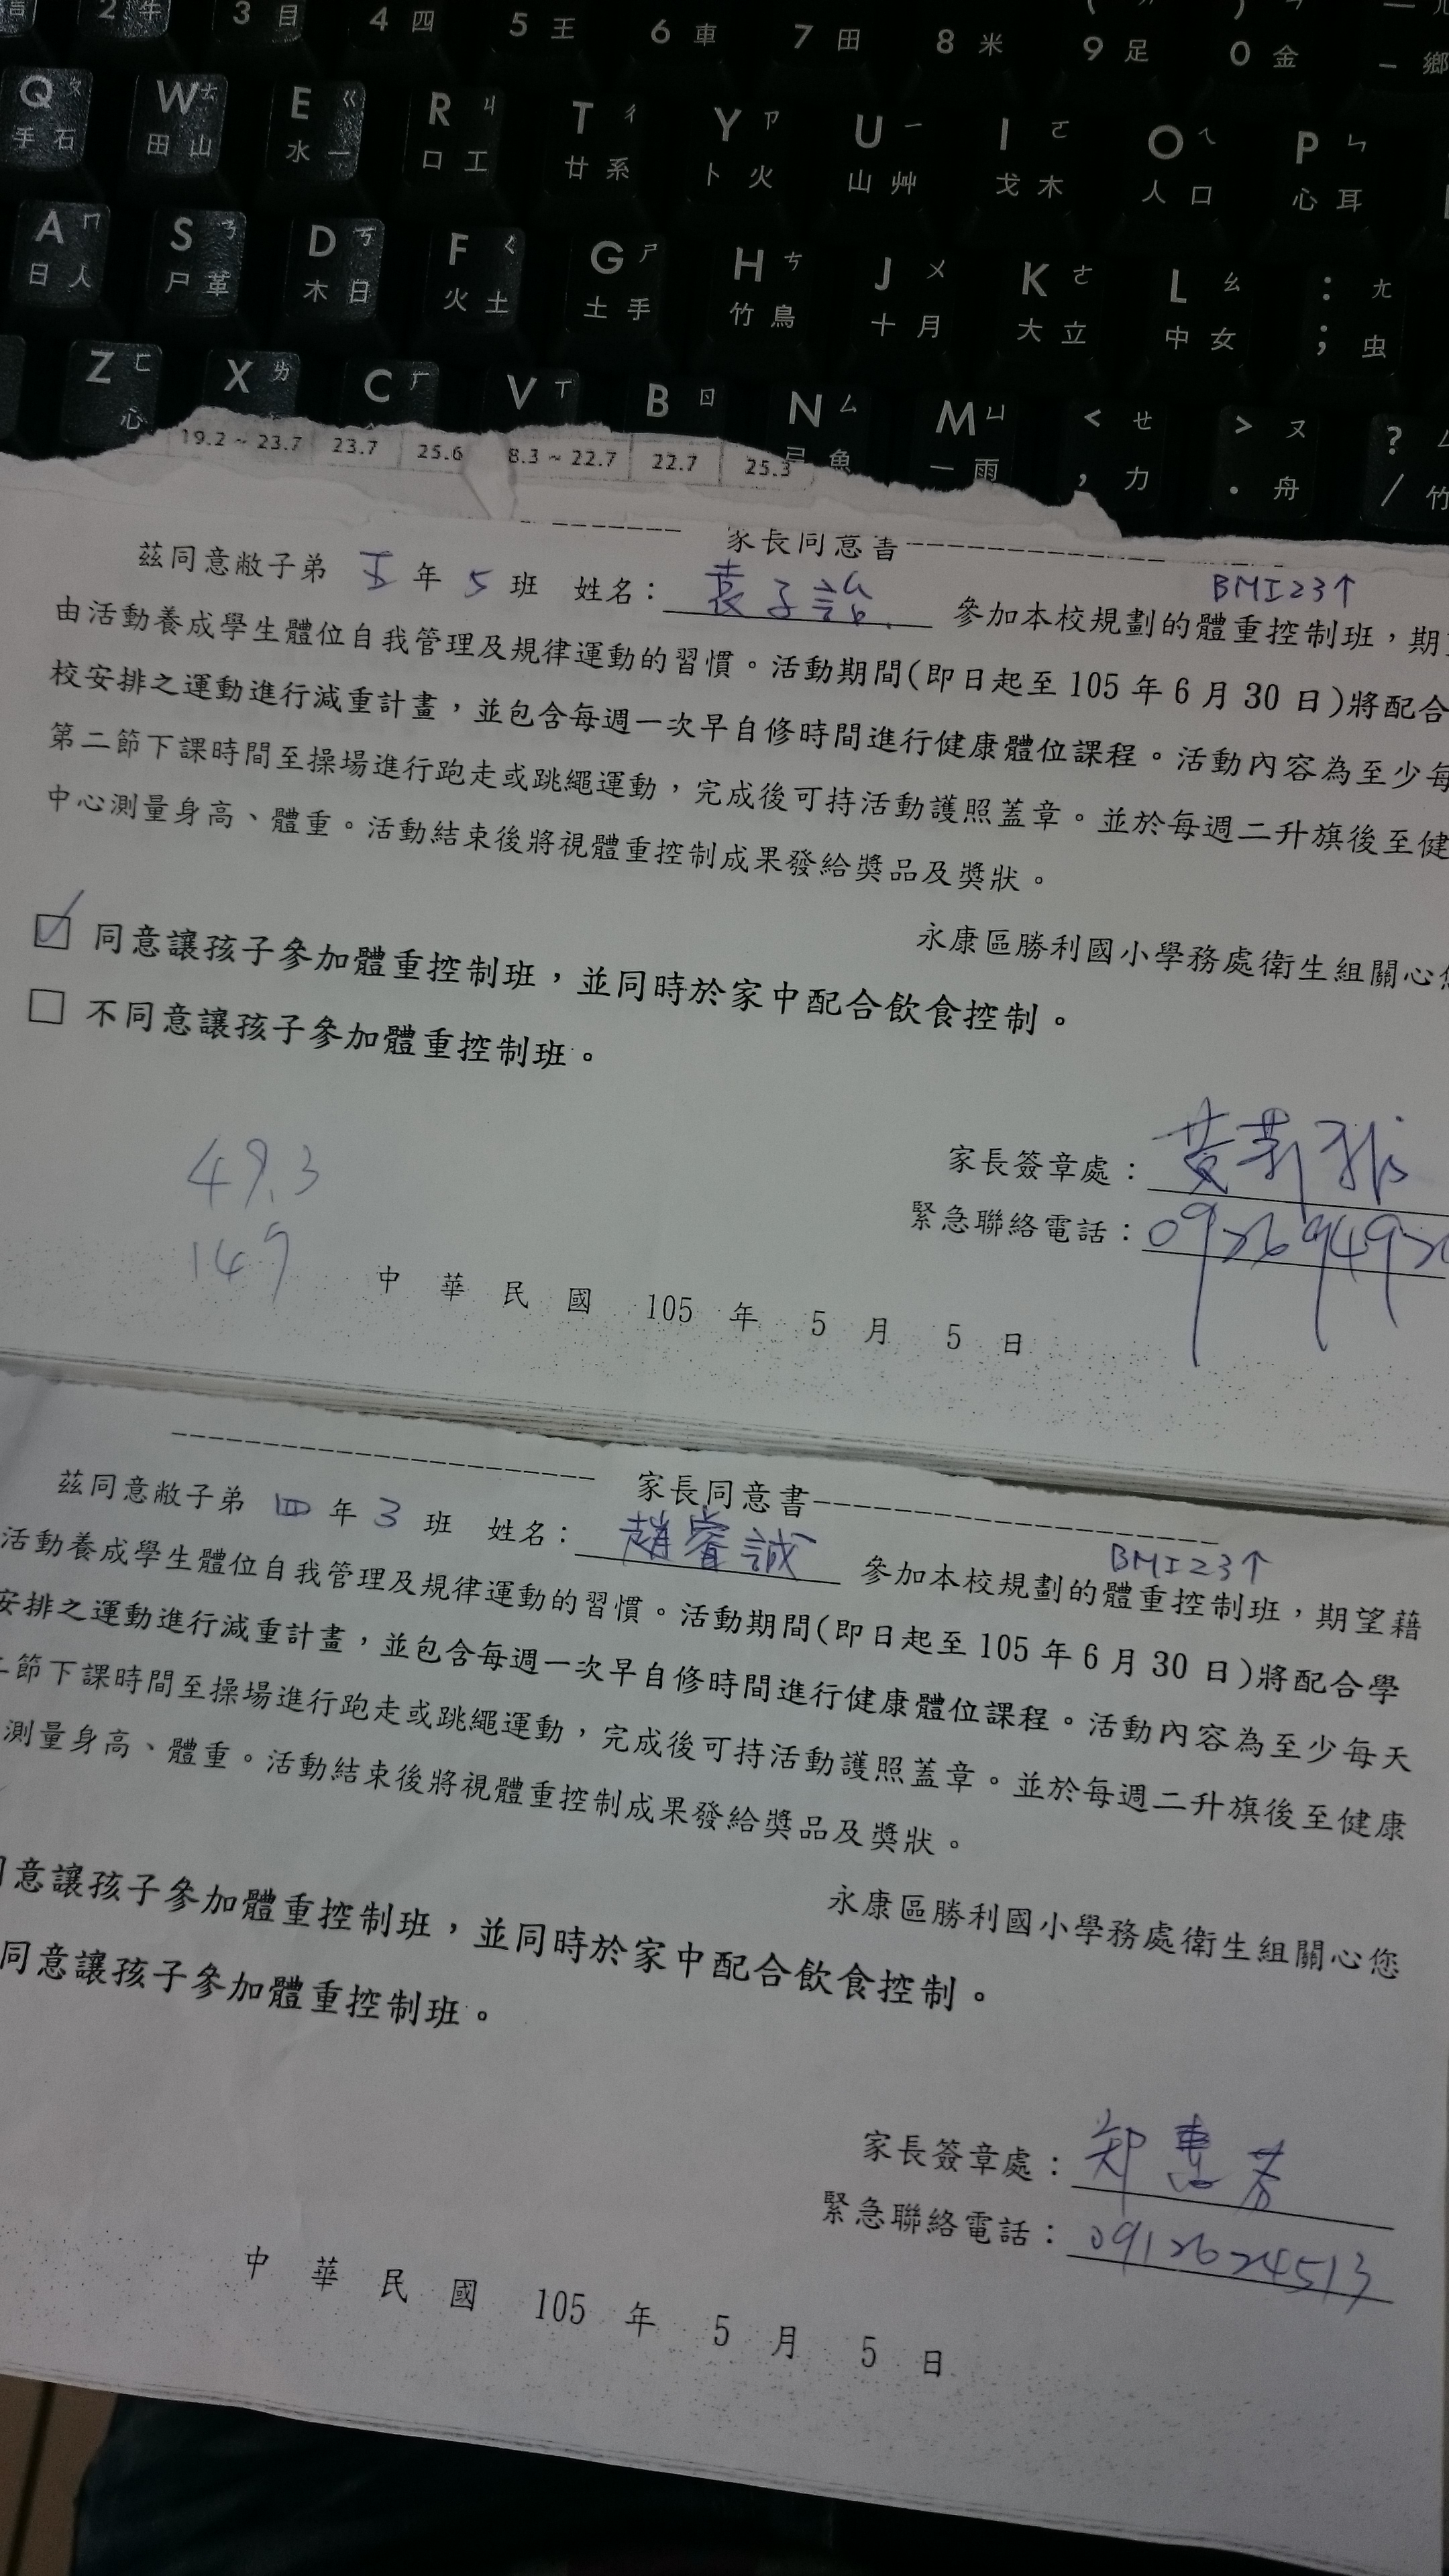 言 2 牛 3 目 4 四 5 王 6 車 7 田 8 米 9 足 0 金 - 鄉
Q ㄆ 手 石 W ㄊ 田 山 E ㄍ 水 一 R ㄐ 口 工 T ㄔ 廿 系 Y ㄗ 卜 火 U ㄧ 山 艸 I ㄛ 戈 木 O ㄟ 人 口 P ㄣ 心 耳
A ㄇ 日 人 S ㄋ 尸 革 D ㄎ 木 日 F ㄑ 火 土 G ㄕ 土 手 H ㄘ 竹 鳥 J ㄨ 十 月 K ㄜ 大 立 L ㄠ 中 女 : ㄤ ; 虫
Z ㄈ 心 X ㄌ C ㄏ V ㄒ B ㄖ N ㄙ 弓 魚 M ㄩ 一 雨 < ㄝ , 力 > ㄡ . 舟 ? ㄥ / 竹
19.2 ~ 23.7 23.7 25.6 8.3 ~ 22.7 22.7 25.3
家長同意書
BMI23↑
茲同意敝子弟 五 年 5 班 姓名: 袁子詒 參加本校規劃的體重控制班,期
由活動養成學生體位自我管理及規律運動的習慣。活動期間(即日起至 105 年 6 月 30 日)將配合
校安排之運動進行減重計畫,並包含每週一次早自修時間進行健康體位課程。活動內容為至少每
第二節下課時間至操場進行跑走或跳繩運動,完成後可持活動護照蓋章。並於每週二升旗後至健
中心測量身高、體重。活動結束後將視體重控制成果發給獎品及獎狀。
永康區勝利國小學務處衛生組關心您
☑ 同意讓孩子參加體重控制班,並同時於家中配合飲食控制。
□ 不同意讓孩子參加體重控制班。
49.3
149
家長簽章處:黃莉
緊急聯絡電話:09269492
中 華 民 國 105 年 5 月 5 日
家長同意書
BMI23↑
茲同意敝子弟 四 年 3 班 姓名: 趙睿誠 參加本校規劃的體重控制班,期望藉
活動養成學生體位自我管理及規律運動的習慣。活動期間(即日起至 105 年 6 月 30 日)將配合學
安排之運動進行減重計畫,並包含每週一次早自修時間進行健康體位課程。活動內容為至少每天
二節下課時間至操場進行跑走或跳繩運動,完成後可持活動護照蓋章。並於每週二升旗後至健康
測量身高、體重。活動結束後將視體重控制成果發給獎品及獎狀。
永康區勝利國小學務處衛生組關心您
意讓孩子參加體重控制班,並同時於家中配合飲食控制。
同意讓孩子參加體重控制班。
家長簽章處:郑惠芳
緊急聯絡電話:0912624513
中 華 民 國 105 年 5 月 5 日